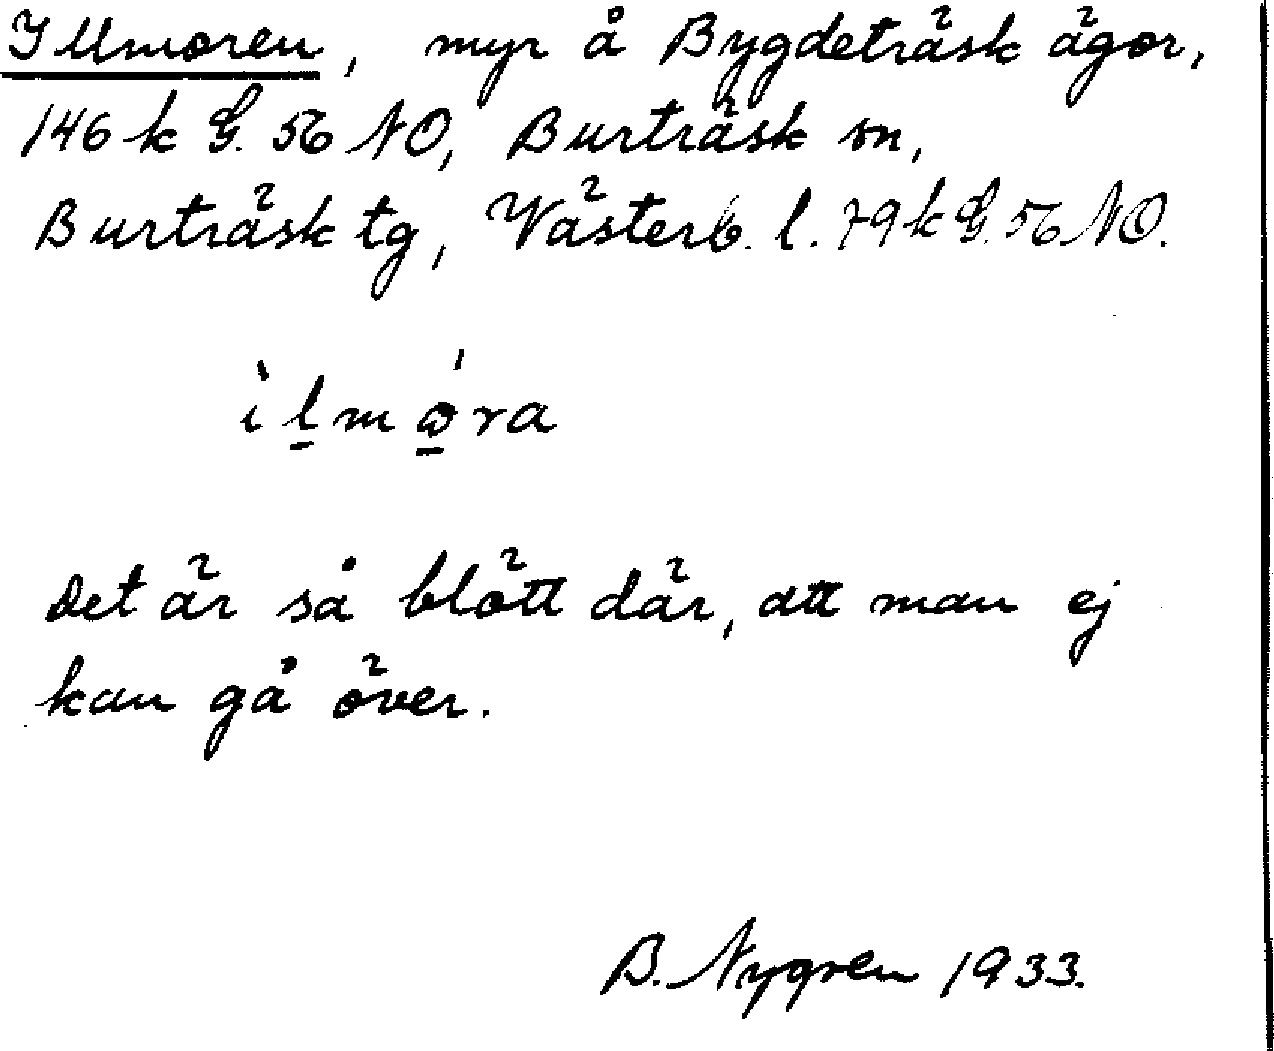 Illmoren, myr å Bygdeträsk ägor,
146 k G. 56 NO, Burträsk sn,
Burträsk tg, Västerb. l. 79 k G. 56 NO.
ìl̠mώ̠ra
Det är så blött där, att man ej
kan gå över.
B. Nygren 1933.